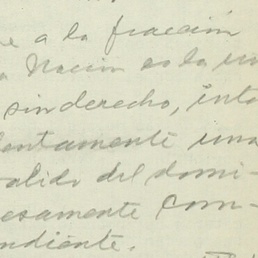 e a la fracción
Nación es la un
sin derecho, into
lentamente una
valido del domi-
esamente com-
ndiente.